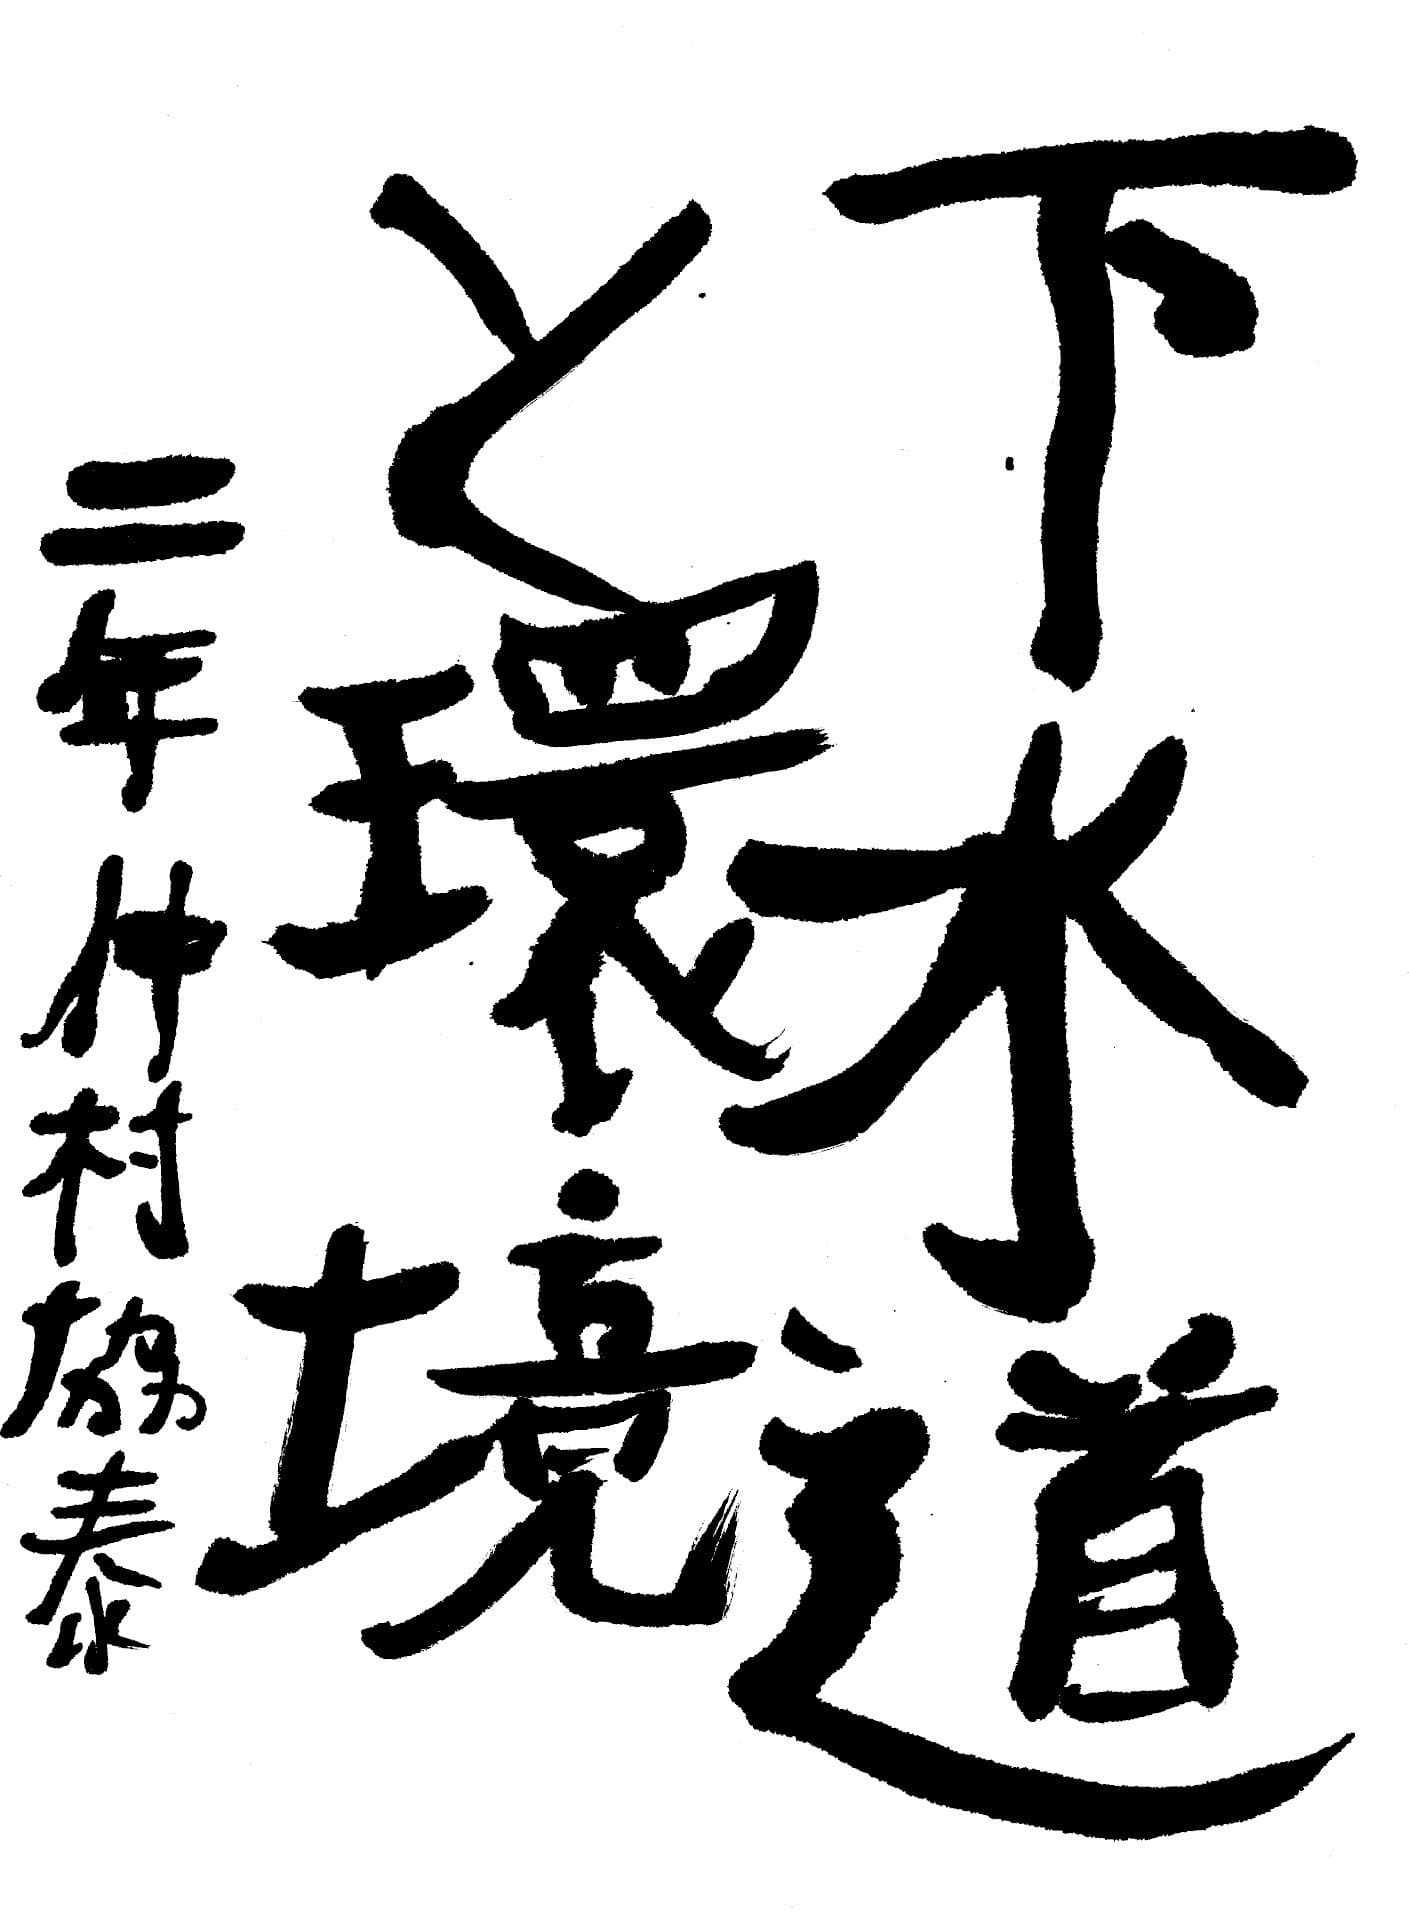 下水道
と環境
二年 仲村協泰